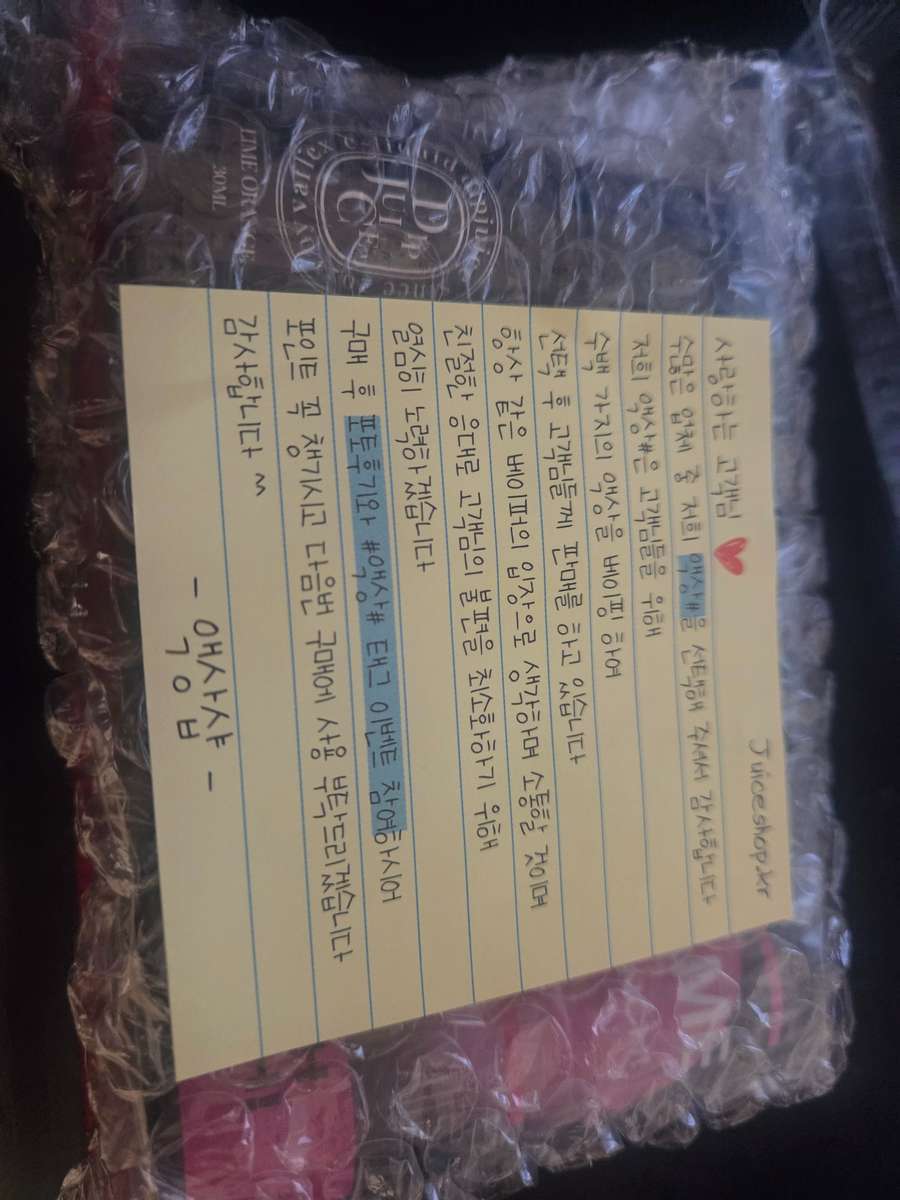 Juiceshop.kr
사랑하는 고객님
수많은 업체 중 저희 액상#을 선택해 주셔서 감사합니다
저희 액상#은 고객님들을 위해
수백 가지의 액상을 베이핑 하여
선택 후 고객님들께 판매를 하고 있습니다
항상 같은 베이퍼의 입장으로 생각하며 소통할 것이며
친절한 응대로 고객님의 불편을 최소화하기 위해
열심히 노력하겠습니다
구매 후 포토후기와 #액상# 태그 이벤트 참여하시어
포인트 꼭 챙기시고 다음번 구매에 사용 부탁드리겠습니다
감사합니다 ~
- 액상샾 -
LIME ORANGE
30ML